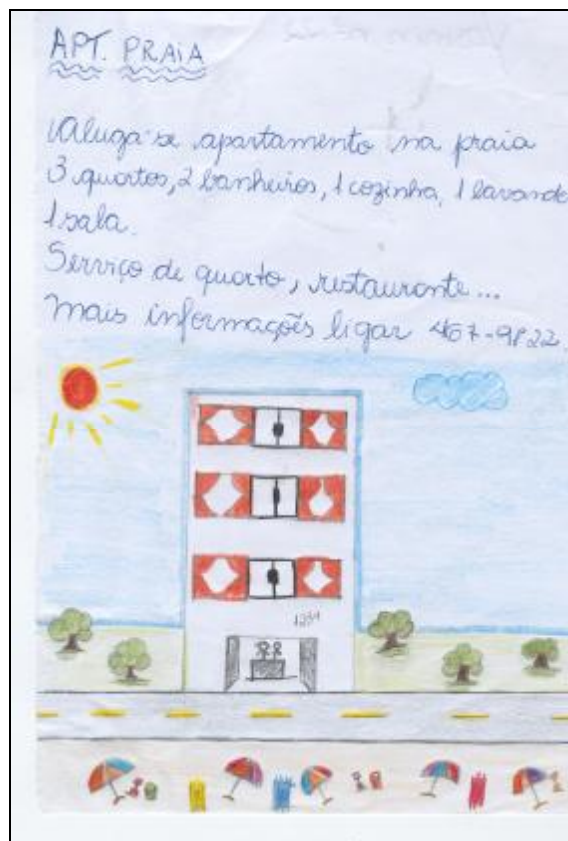 APT. PRAIA
Aluga-se apartamento na praia
3 quartos, 2 banheiros, 1 cozinha, 1 lavande
1 sala.
Serviço de quarto, restaurante...
mais informações ligar 467-9822.
1234